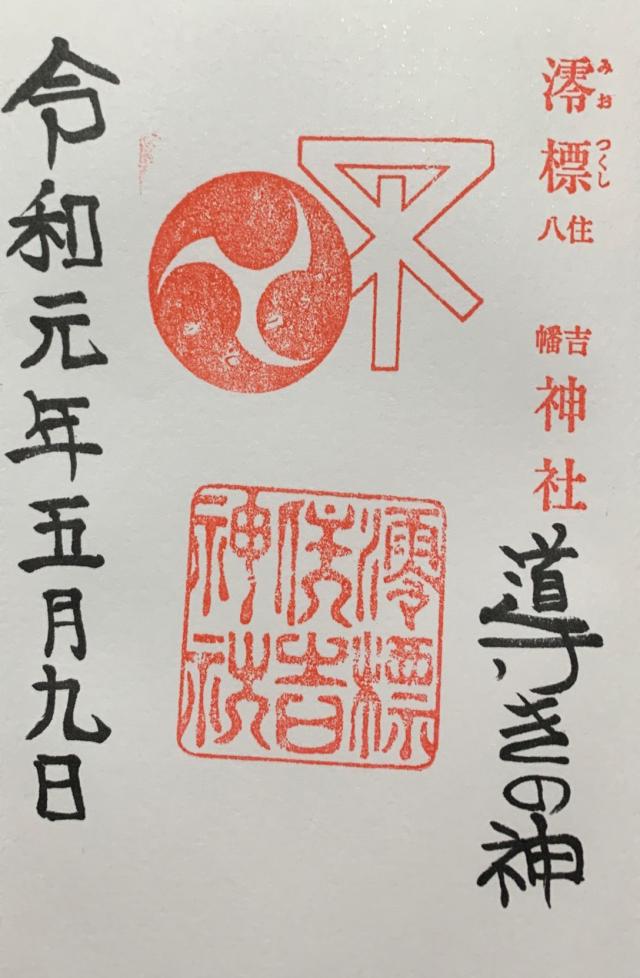 澪標住吉八幡神社
みおつくし
導きの神
澪標
住吉
神社
令和元年五月九日